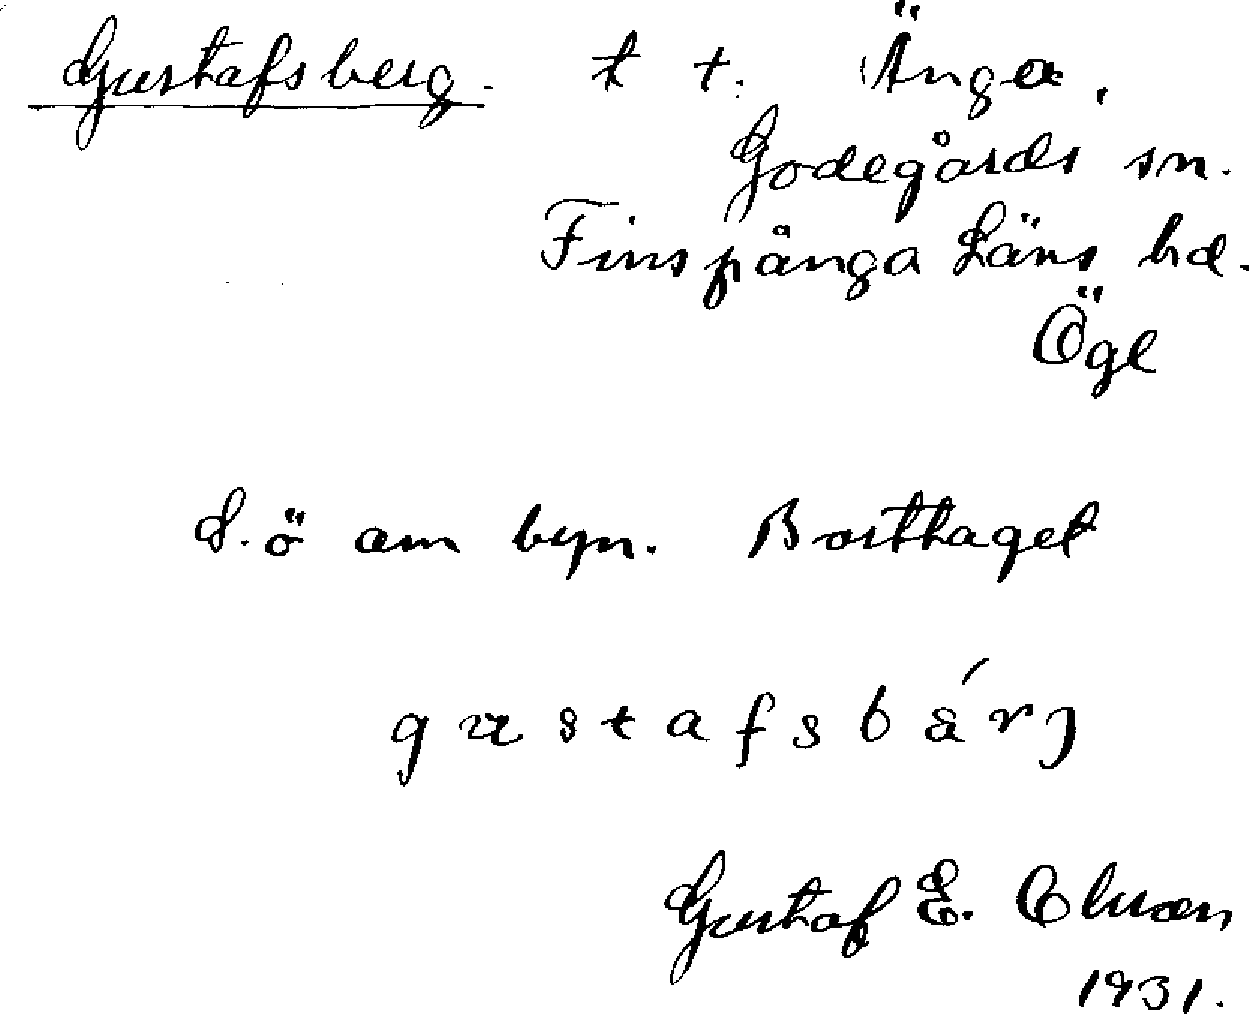 Gustafsberg. t t. Änga,
Godegårds sn.
Finspånga Läns hd.
Ögl
S.ö om byn. Borthaget
gustafsbärj
Gustaf E. Olsson
1931.